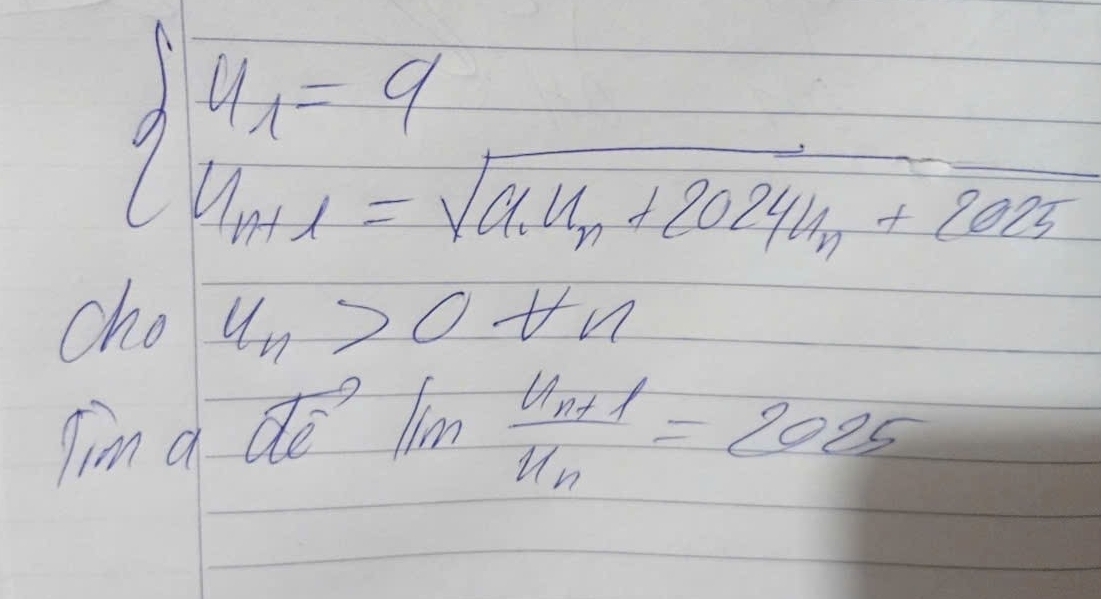 { u₁ = a
u_{n+1} = √(a.u_n + 2024u_n + 2025)
cho u_n > 0 ∀n
Tìm a để lim u_{n+1}/u_n = 2025